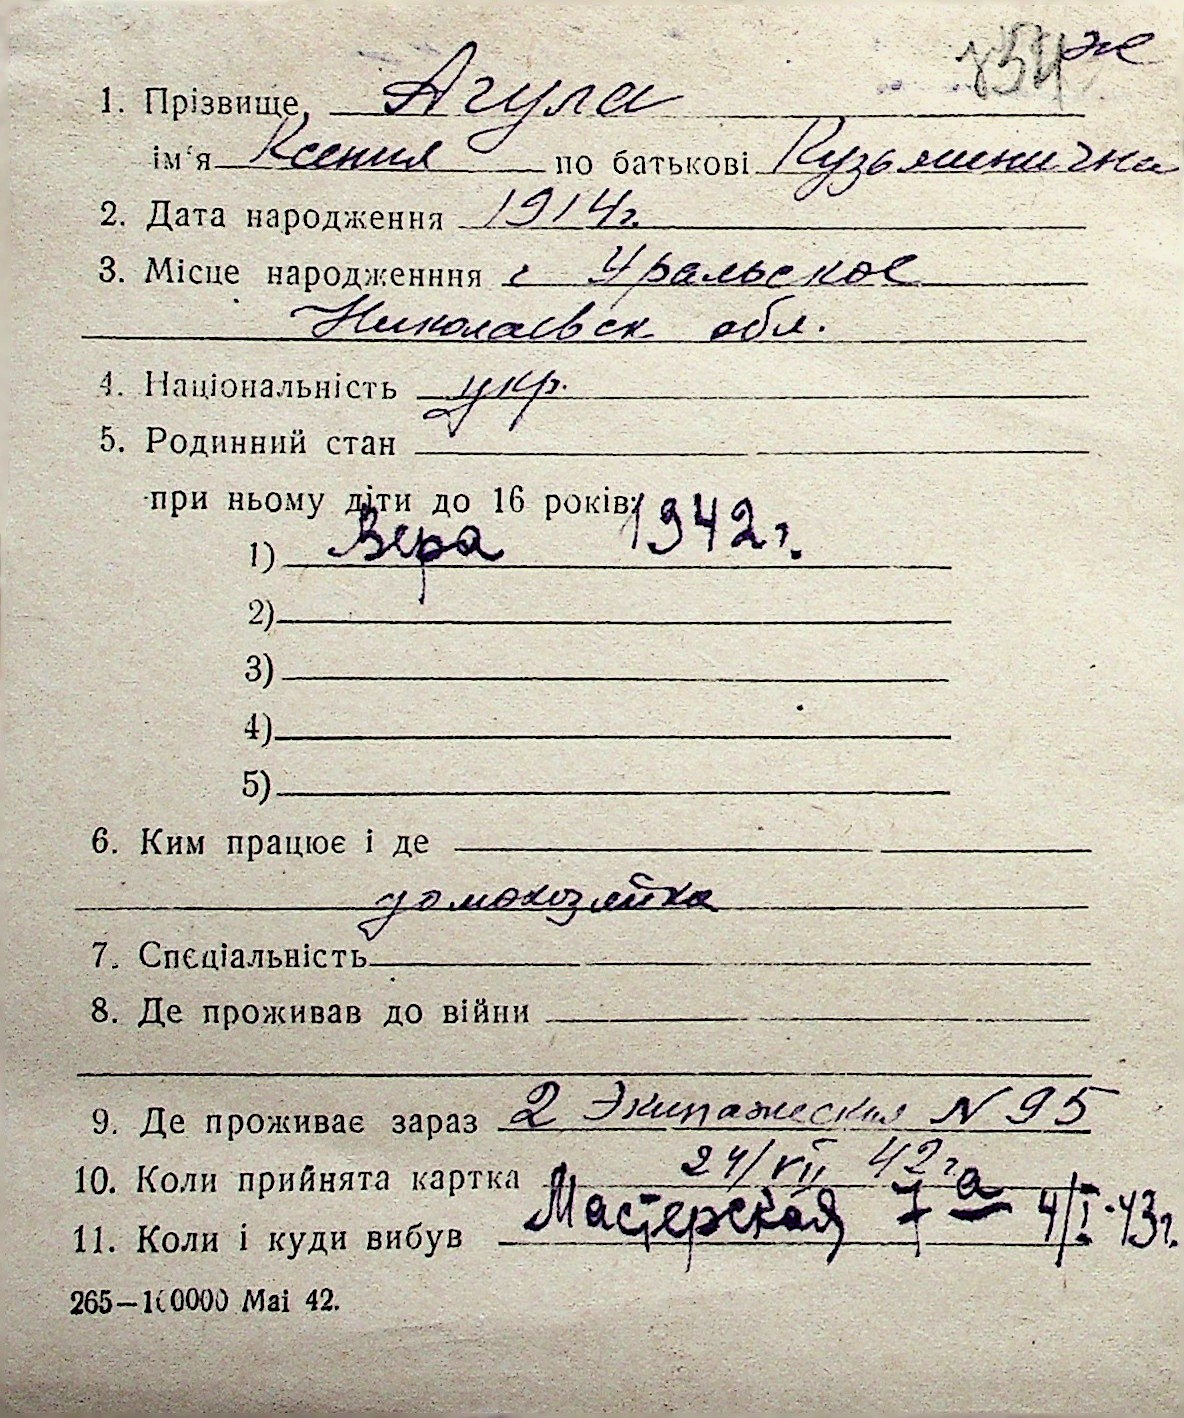 754 же
1. Прізвище, Агула
ім'я Ксения по батькові Кузьминична
2. Дата народження 1914г.
3. Місце народженння с Уральское
Николаевск обл.
4. Національність укр.
5. Родинний стан
при ньому діти до 16 років:
1) Вера 1942г.
2)
3)
4)
5)
6. Ким працює і де
домохозяйка
7. Спеціальність
8. Де проживав до війни
9. Де проживає зараз 2 Экипажеская N 95
10. Коли прийнята картка 24/VII 42г
11. Коли і куди вибув Мастерская 7а 4/I-43г.
265—100000 Mai 42.